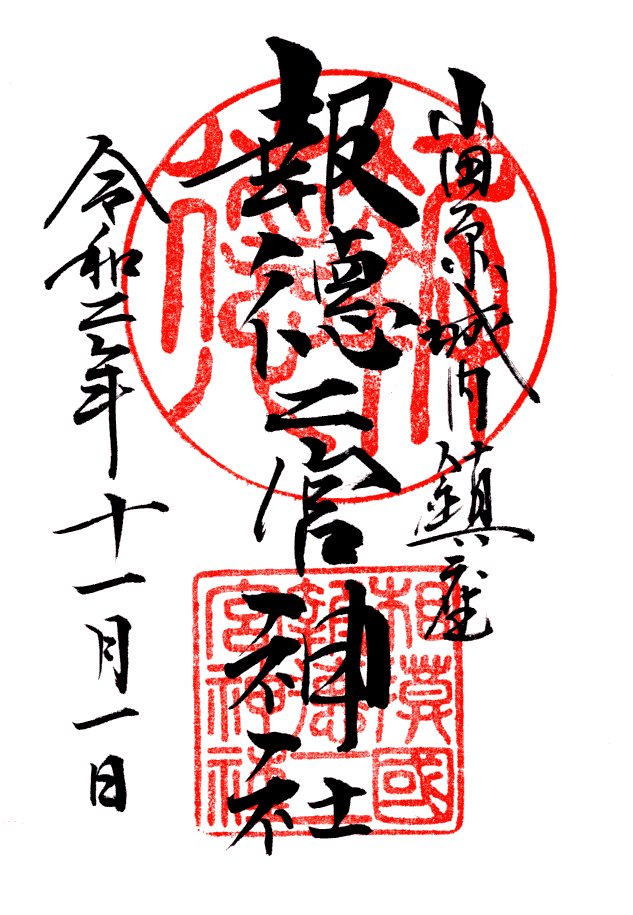 小田原城内鎮座
報徳二宮神社
令和二年十一月一日
相模國
報徳二
宮神社